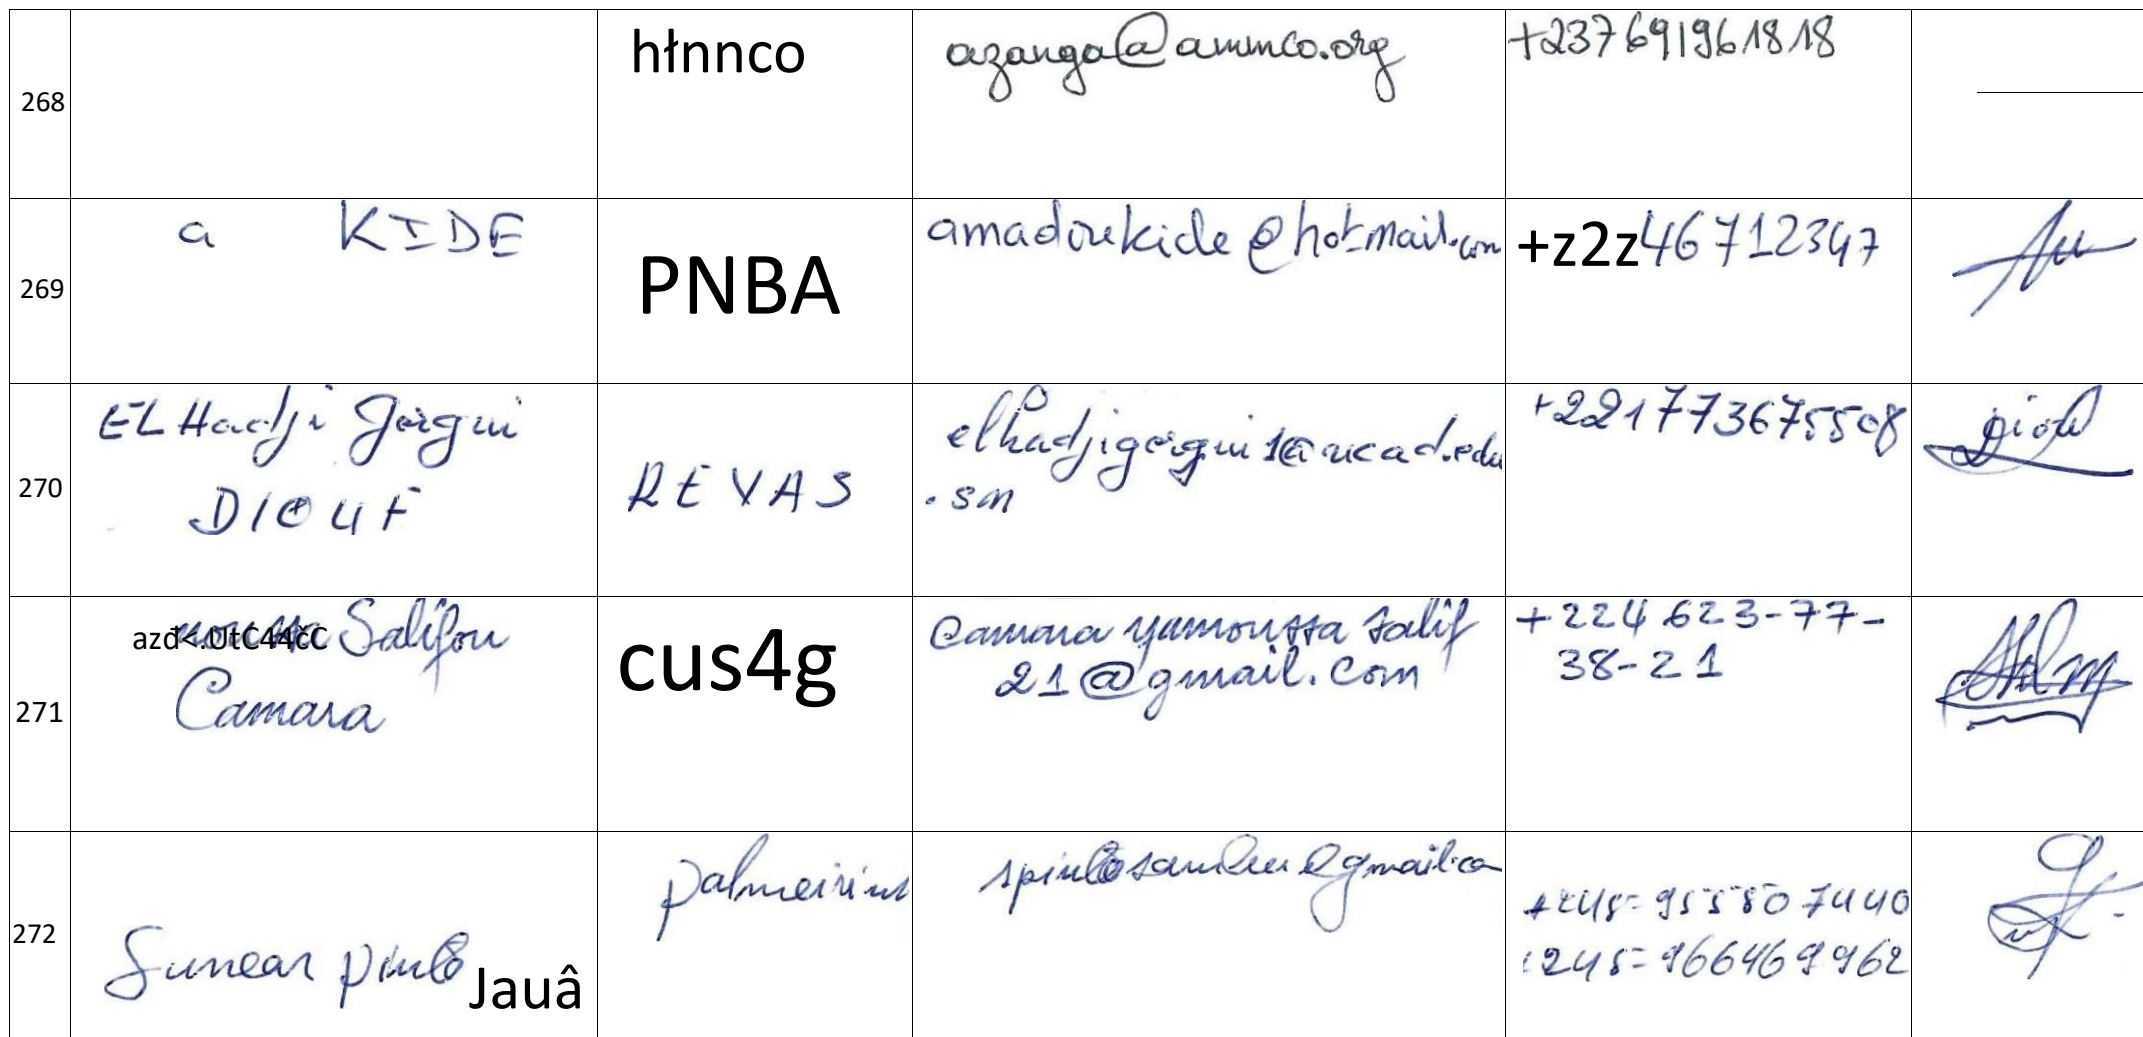 268
hłnnco
azanga@ammco.org
+237691961818
269
a KIDE
PNBA
amadoukide@hotmail.com
+z2z46712347
270
EL Hadji Gorgui
DIOUF
REVAS
elhadjigorgui1@ucad.edu
.sn
+221773675508
271
Salifou
Camara
cus4g
Camara yamoussa salif
21@gmail.com
+224 623-77-
38-21
272
Jauâ
+245=955807440
+245=966469962